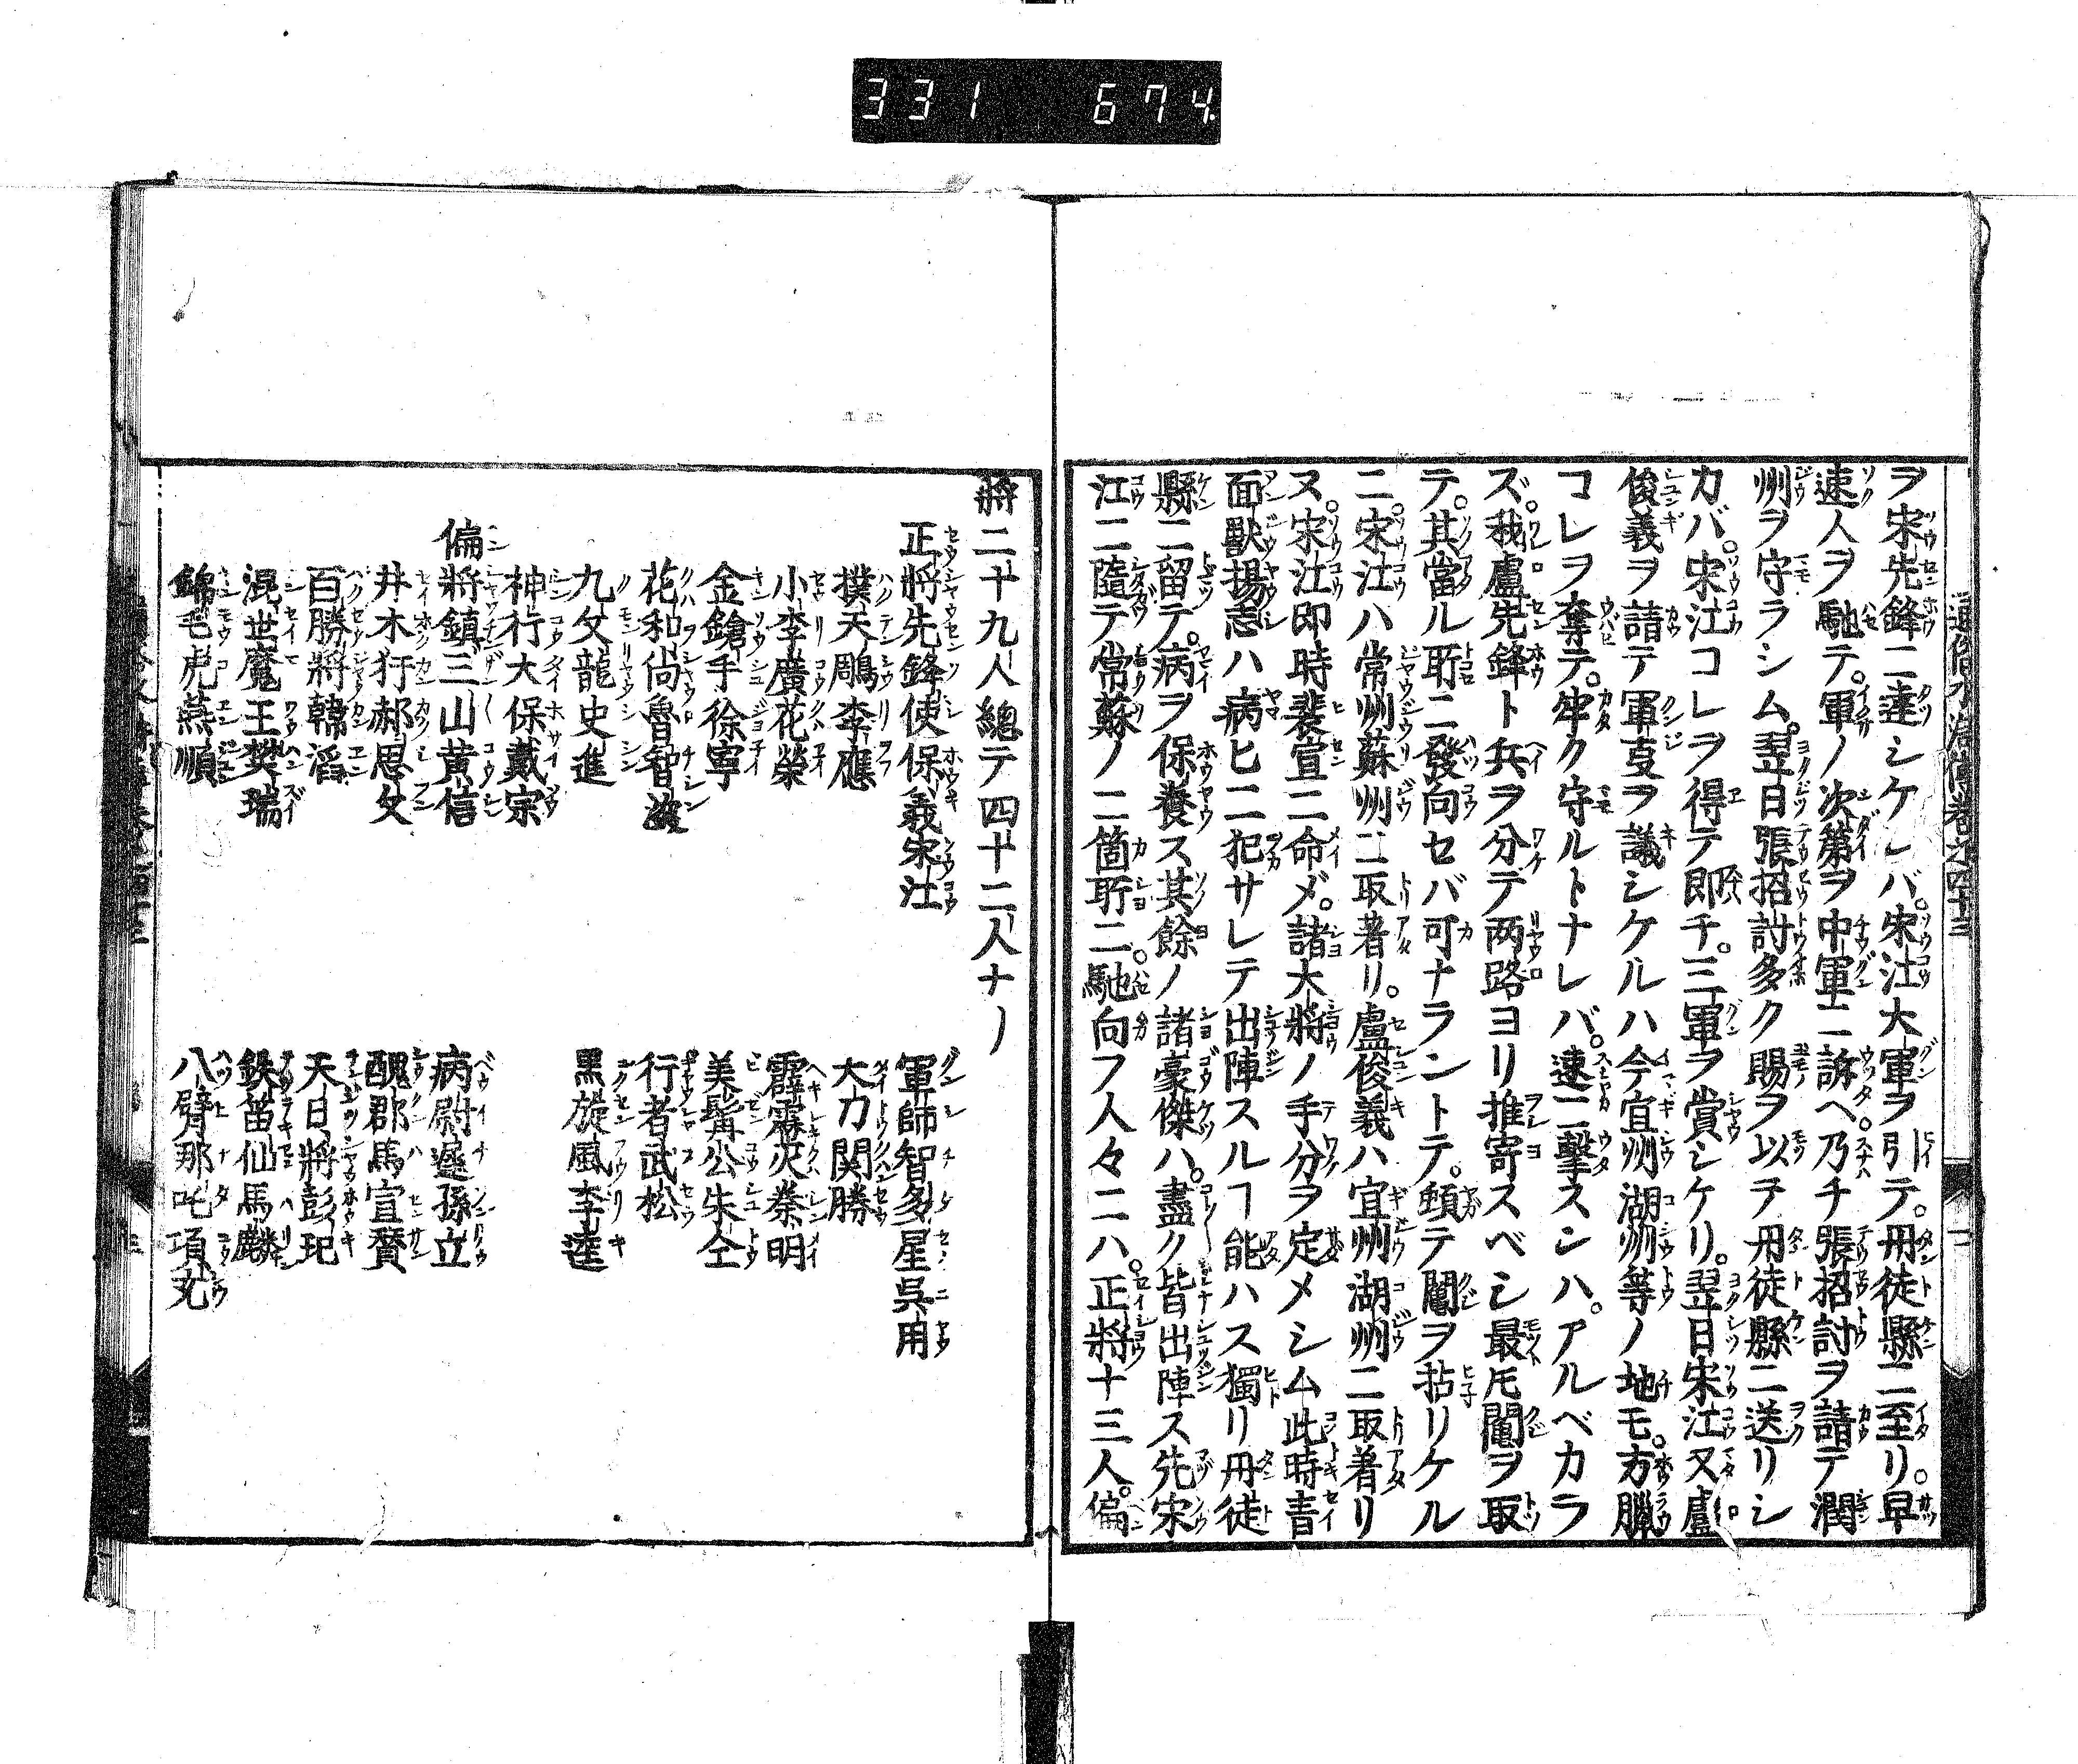 331 674
ヲ宋先鋒ニ達シケレバ。宋江大軍ヲ引テ。丹徒縣ニ至リ。早
速人ヲ馳テ。軍ノ次第ヲ中軍ニ訴ヘ。乃チ張招討ヲ請テ潤
州ヲ守ラシム。翌日張招討多ク賜ヲ以テ丹徒縣ニ送リシ
カバ。宋江コレヲ得テ即チ。三軍ヲ賞シケリ。翌日宋江又盧
俊義ヲ請テ軍㕝ヲ議シケルハ今宜州湖州等ノ地モ。方臘
コレヲ奪テ。牢ク守ルトナレバ。速ニ擊スンハ。アルベカラ
ズ。我盧先鋒ト兵ヲ分テ两路ヨリ推寄スベシ最𪜈鬮ヲ取
テ。其當ル所ニ發向セバ可ナラントテ。頓テ鬮ヲ拈リケル
ニ。宋江ハ常州蘇州ニ取著リ。盧俊義ハ宜州湖州ニ取着リ
ヌ。宋江即時裴宣ニ命ジ。諸大將ノ手分ヲ定メシム此時青
面獸揚志ハ病ヒニ犯サレテ出陣スルヿ能ハス獨リ丹徒
縣ニ留テ。病ヲ保養ス其餘ノ諸豪傑ハ。盡ク皆出陣ス先宋
江ニ隨テ常蘇ノ二箇所ニ。馳向フ人々ニハ。正將十三人。偏
將二十九人總テ四十二人ナリ
正將先鋒使保義宋江
軍師智多星吳用
撲天鵰李應
大刀関勝
小李廣花榮
霹靂火秦明
金鎗手徐寧
美髯公朱仝
花和尚魯智深
行者武松
九文龍史進
黒旋風李逵
神行大保戴宗
偏將鎮三山黄信
病尉遲孫立
井木犴郝思文
醜郡馬宣賛
百勝將韓滔
天目將彭玘
混世魔王樊瑞
鉄笛仙馬麟
錦毛虎燕順
八臂那吒項充